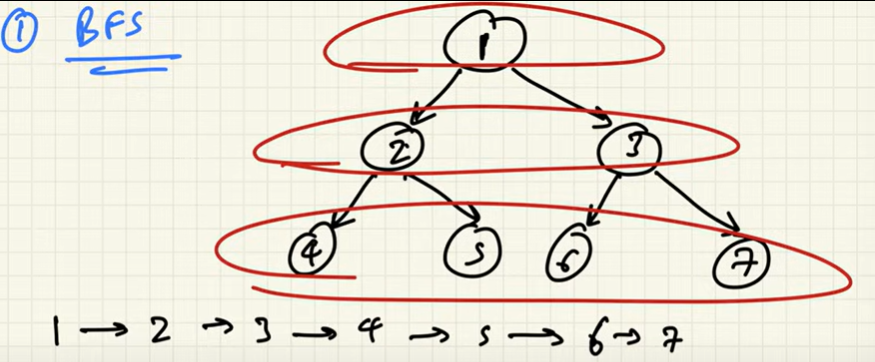 ① BFS
1
2 3
4 5 6 7
1 → 2 → 3 → 4 → 5 → 6 → 7